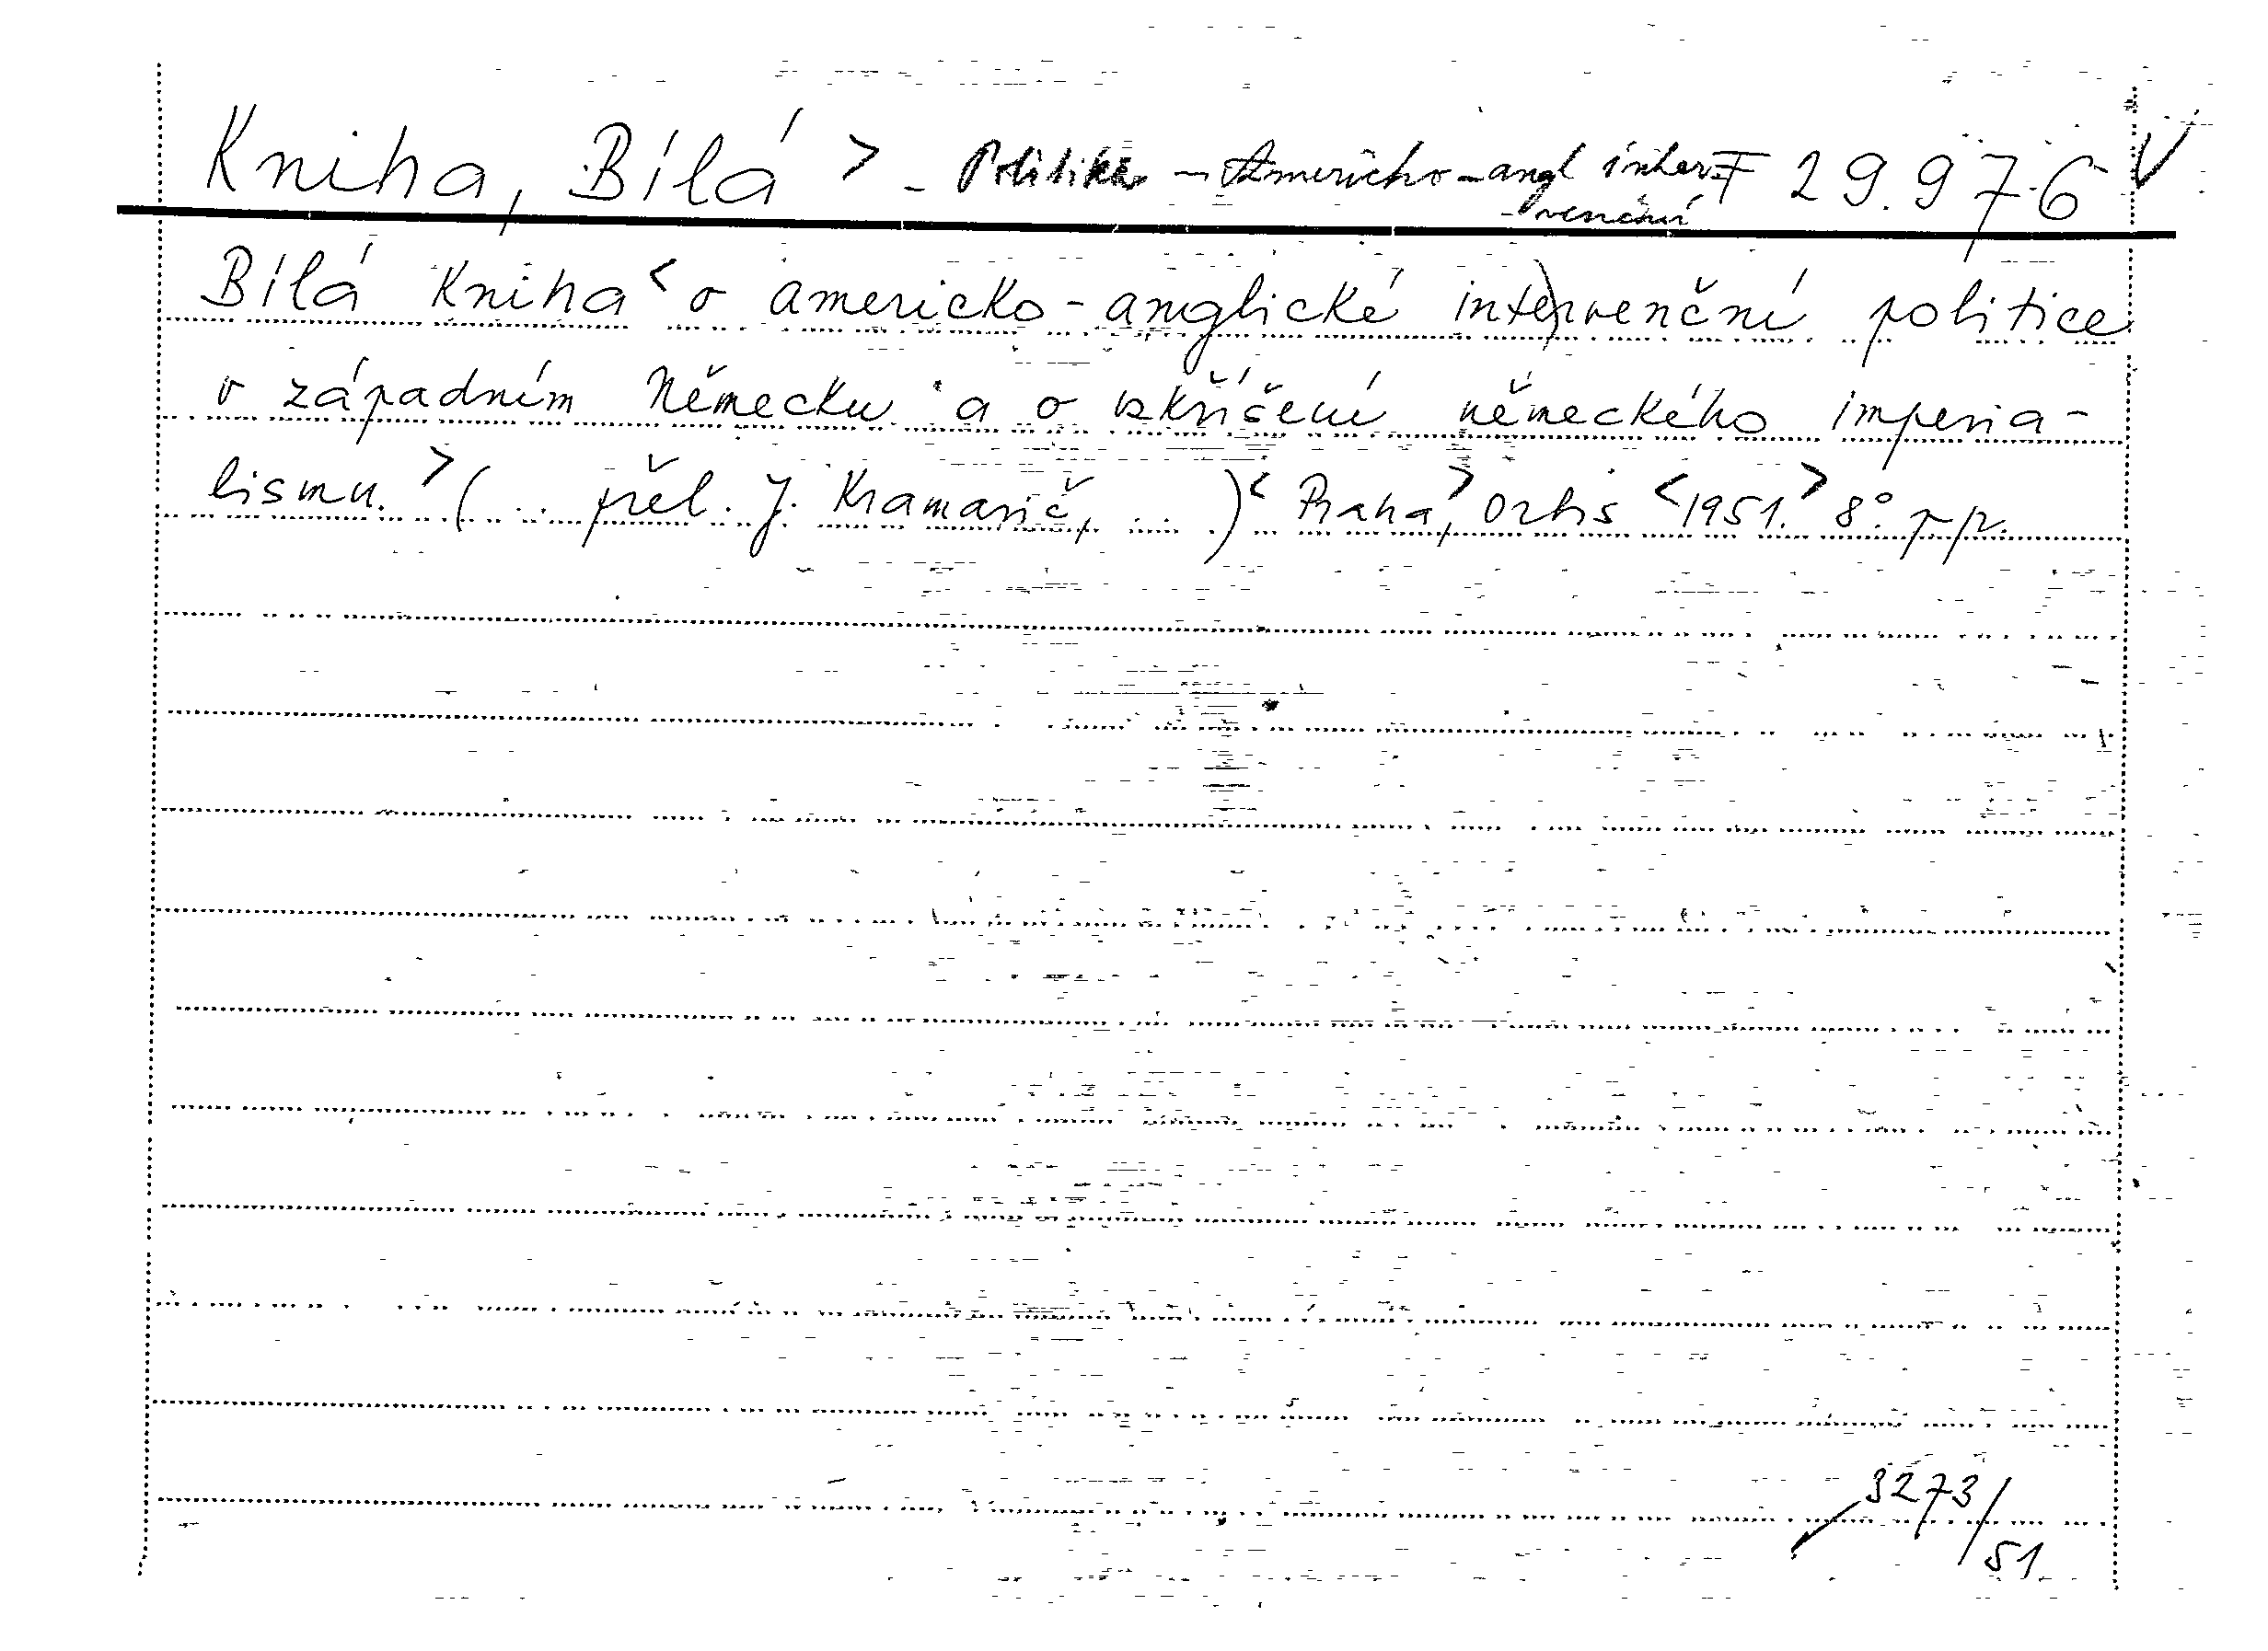 Kniha, Bílá > - Politika - Americko-angl inter- F 29.976 V
-venční
Bílá Kniha < o americko-anglické intervenční politice
v západním Německu a o vzkříšení německého imperia-
lismu. > ( .. přel. J. Kramarič, ... ) < Praha, > Orbis < 1951. > 8°. pp.
3273/
51